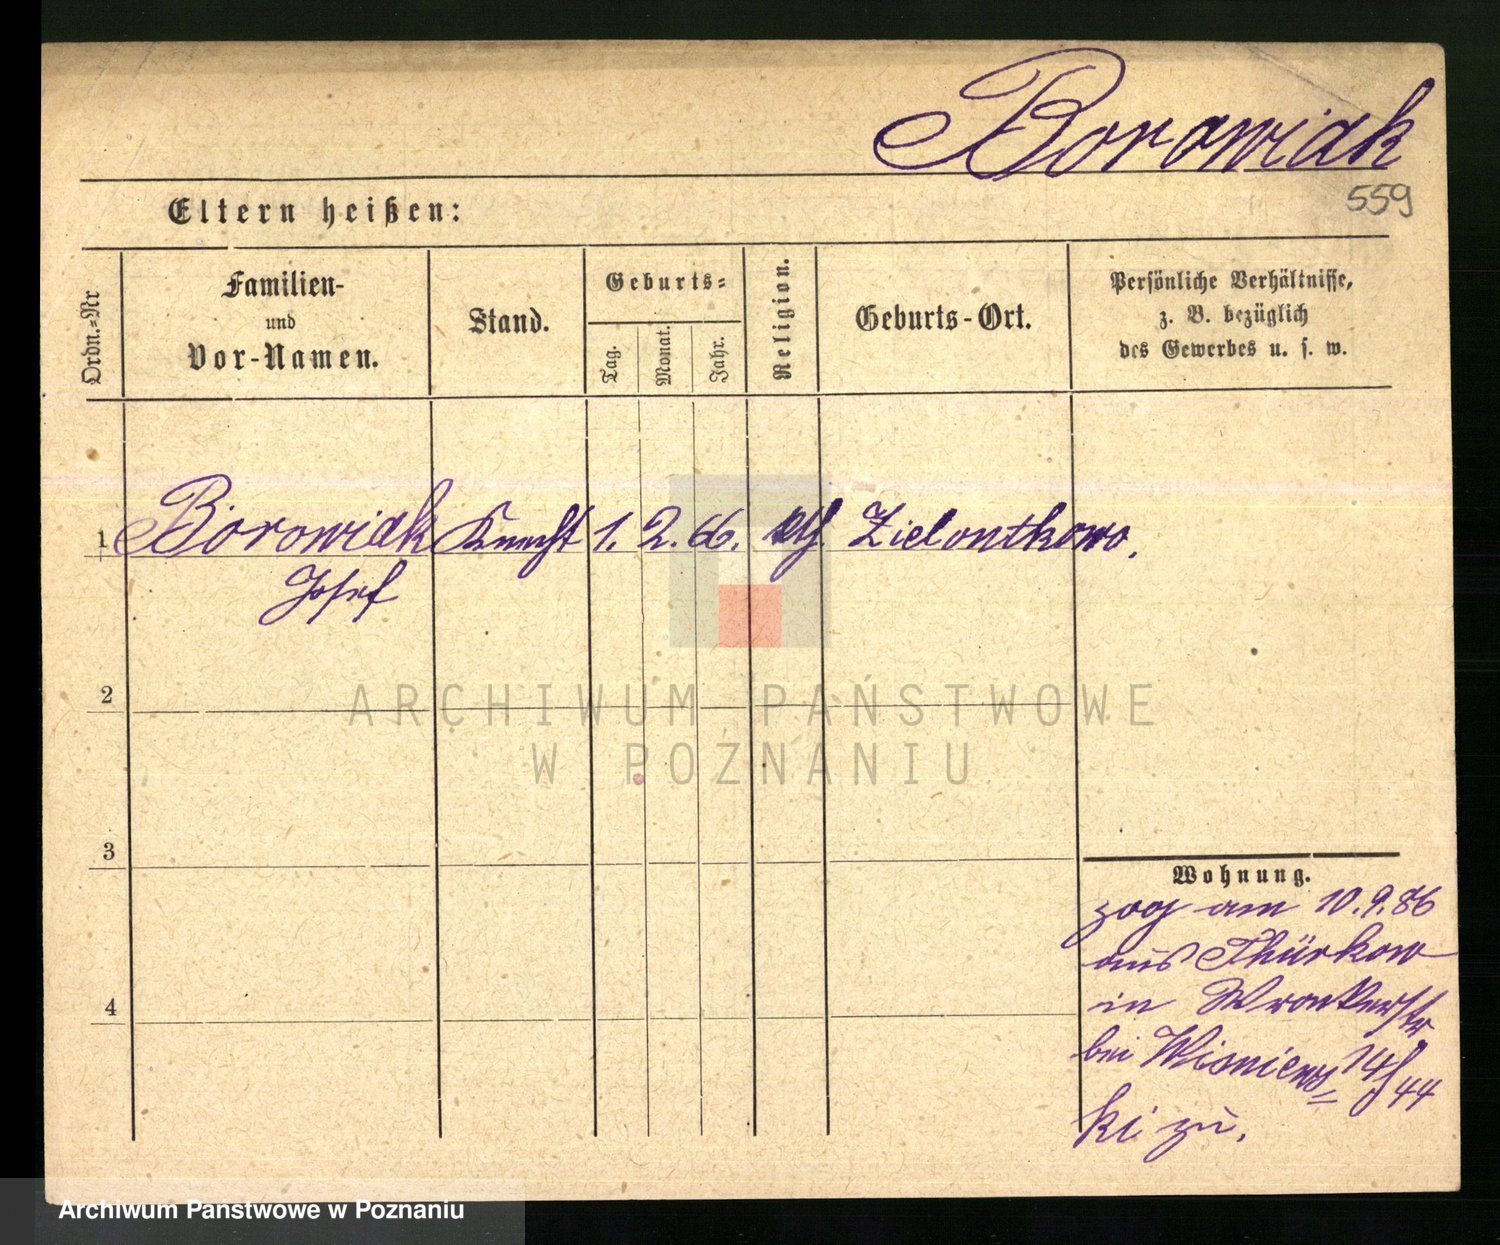 Borowiak
559
Eltern heißen:
Ordn.=Nr
Familien-
und
Vor-Namen.
Stand.
Geburts=
Tag.
Monat.
Jahr.
Religion.
Geburts-Ort.
Persönliche Verhältnisse,
z. B. bezüglich
des Gewerbes u. s. w.
1 Borowiak Knecht 1. 2. 66. kth. Zielontkowo.
Josef
2
3
4
Wohnung.
zog am 10.9.86
aus Thürkow
in Wronkerstr
bei Wisniews= 14/44
ki zu.
ARCHIWUM PAŃSTWOWE
W POZNANIU
Archiwum Państwowe w Poznaniu